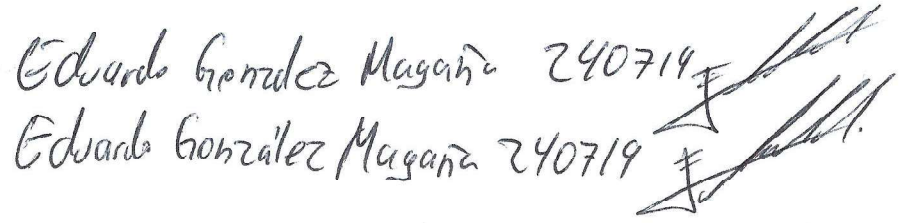 Eduardo González Magaña 240719
Eduardo González Magaña 240719